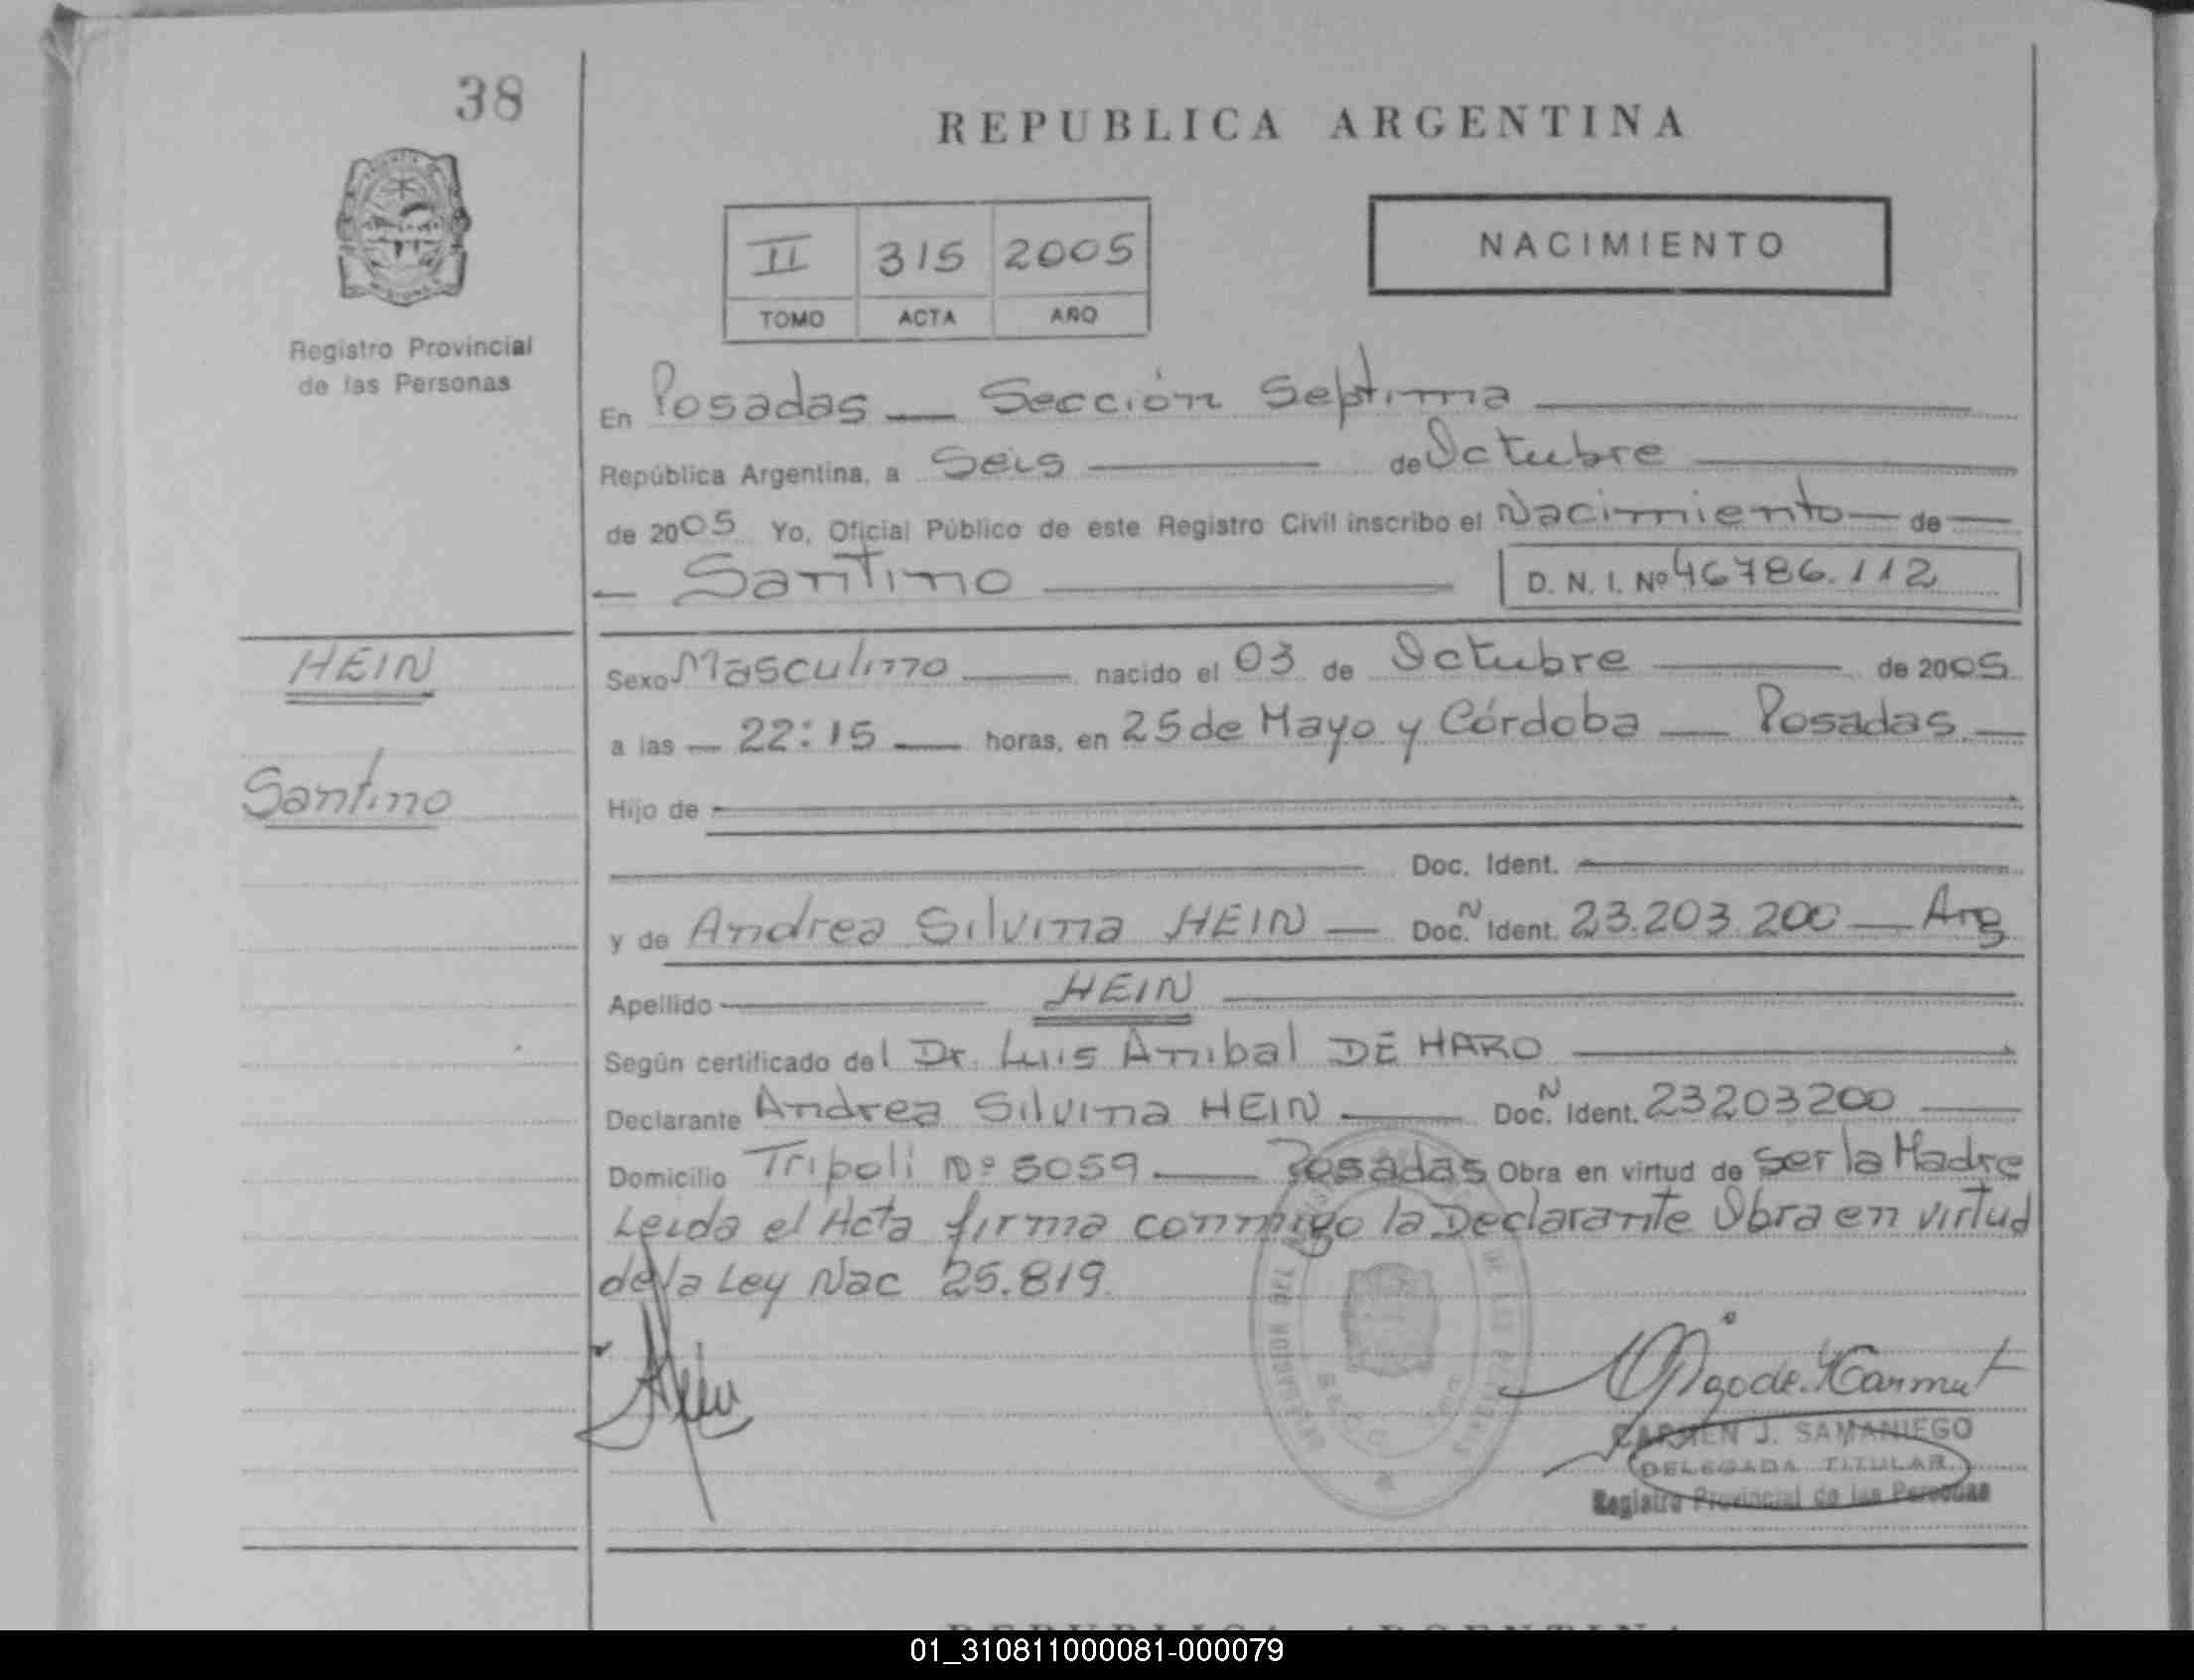 38
REPUBLICA ARGENTINA
II 315 2005
TOMO ACTA AÑO
NACIMIENTO
Registro Provincial
de las Personas
En Posadas — Sección Septima
República Argentina, a Seis de Octubre
de 2005 Yo, Oficial Público de este Registro Civil inscribo el Nacimiento de
Santino D. N. I. Nº 46786.112
HEIN
Santino
Sexo Masculino nacido el 03 de Octubre de 2005
a las 22:15 horas, en 25 de Mayo y Córdoba — Posadas
Hijo de
Doc. Ident.
y de Andrea Silvina HEIN — Doc. N Ident. 23.203.200 — Arg
Apellido HEIN
Según certificado del Dr. Luis Anibal DE HARO
Declarante Andrea Silvina HEIN Doc. N Ident. 23203200
Domicilio Tripoli Nº 5059 — Posadas Obra en virtud de ser la Madre
Leida el Acta firma conmigo la Declarante Obra en virtud
de la Ley Nac 25.819.
CARMEN J. SAMANIEGO
DELEGADA TITULAR
Registro Provincial de las Personas
REPUBLICA ARGENTINA
01_310811000081-000079